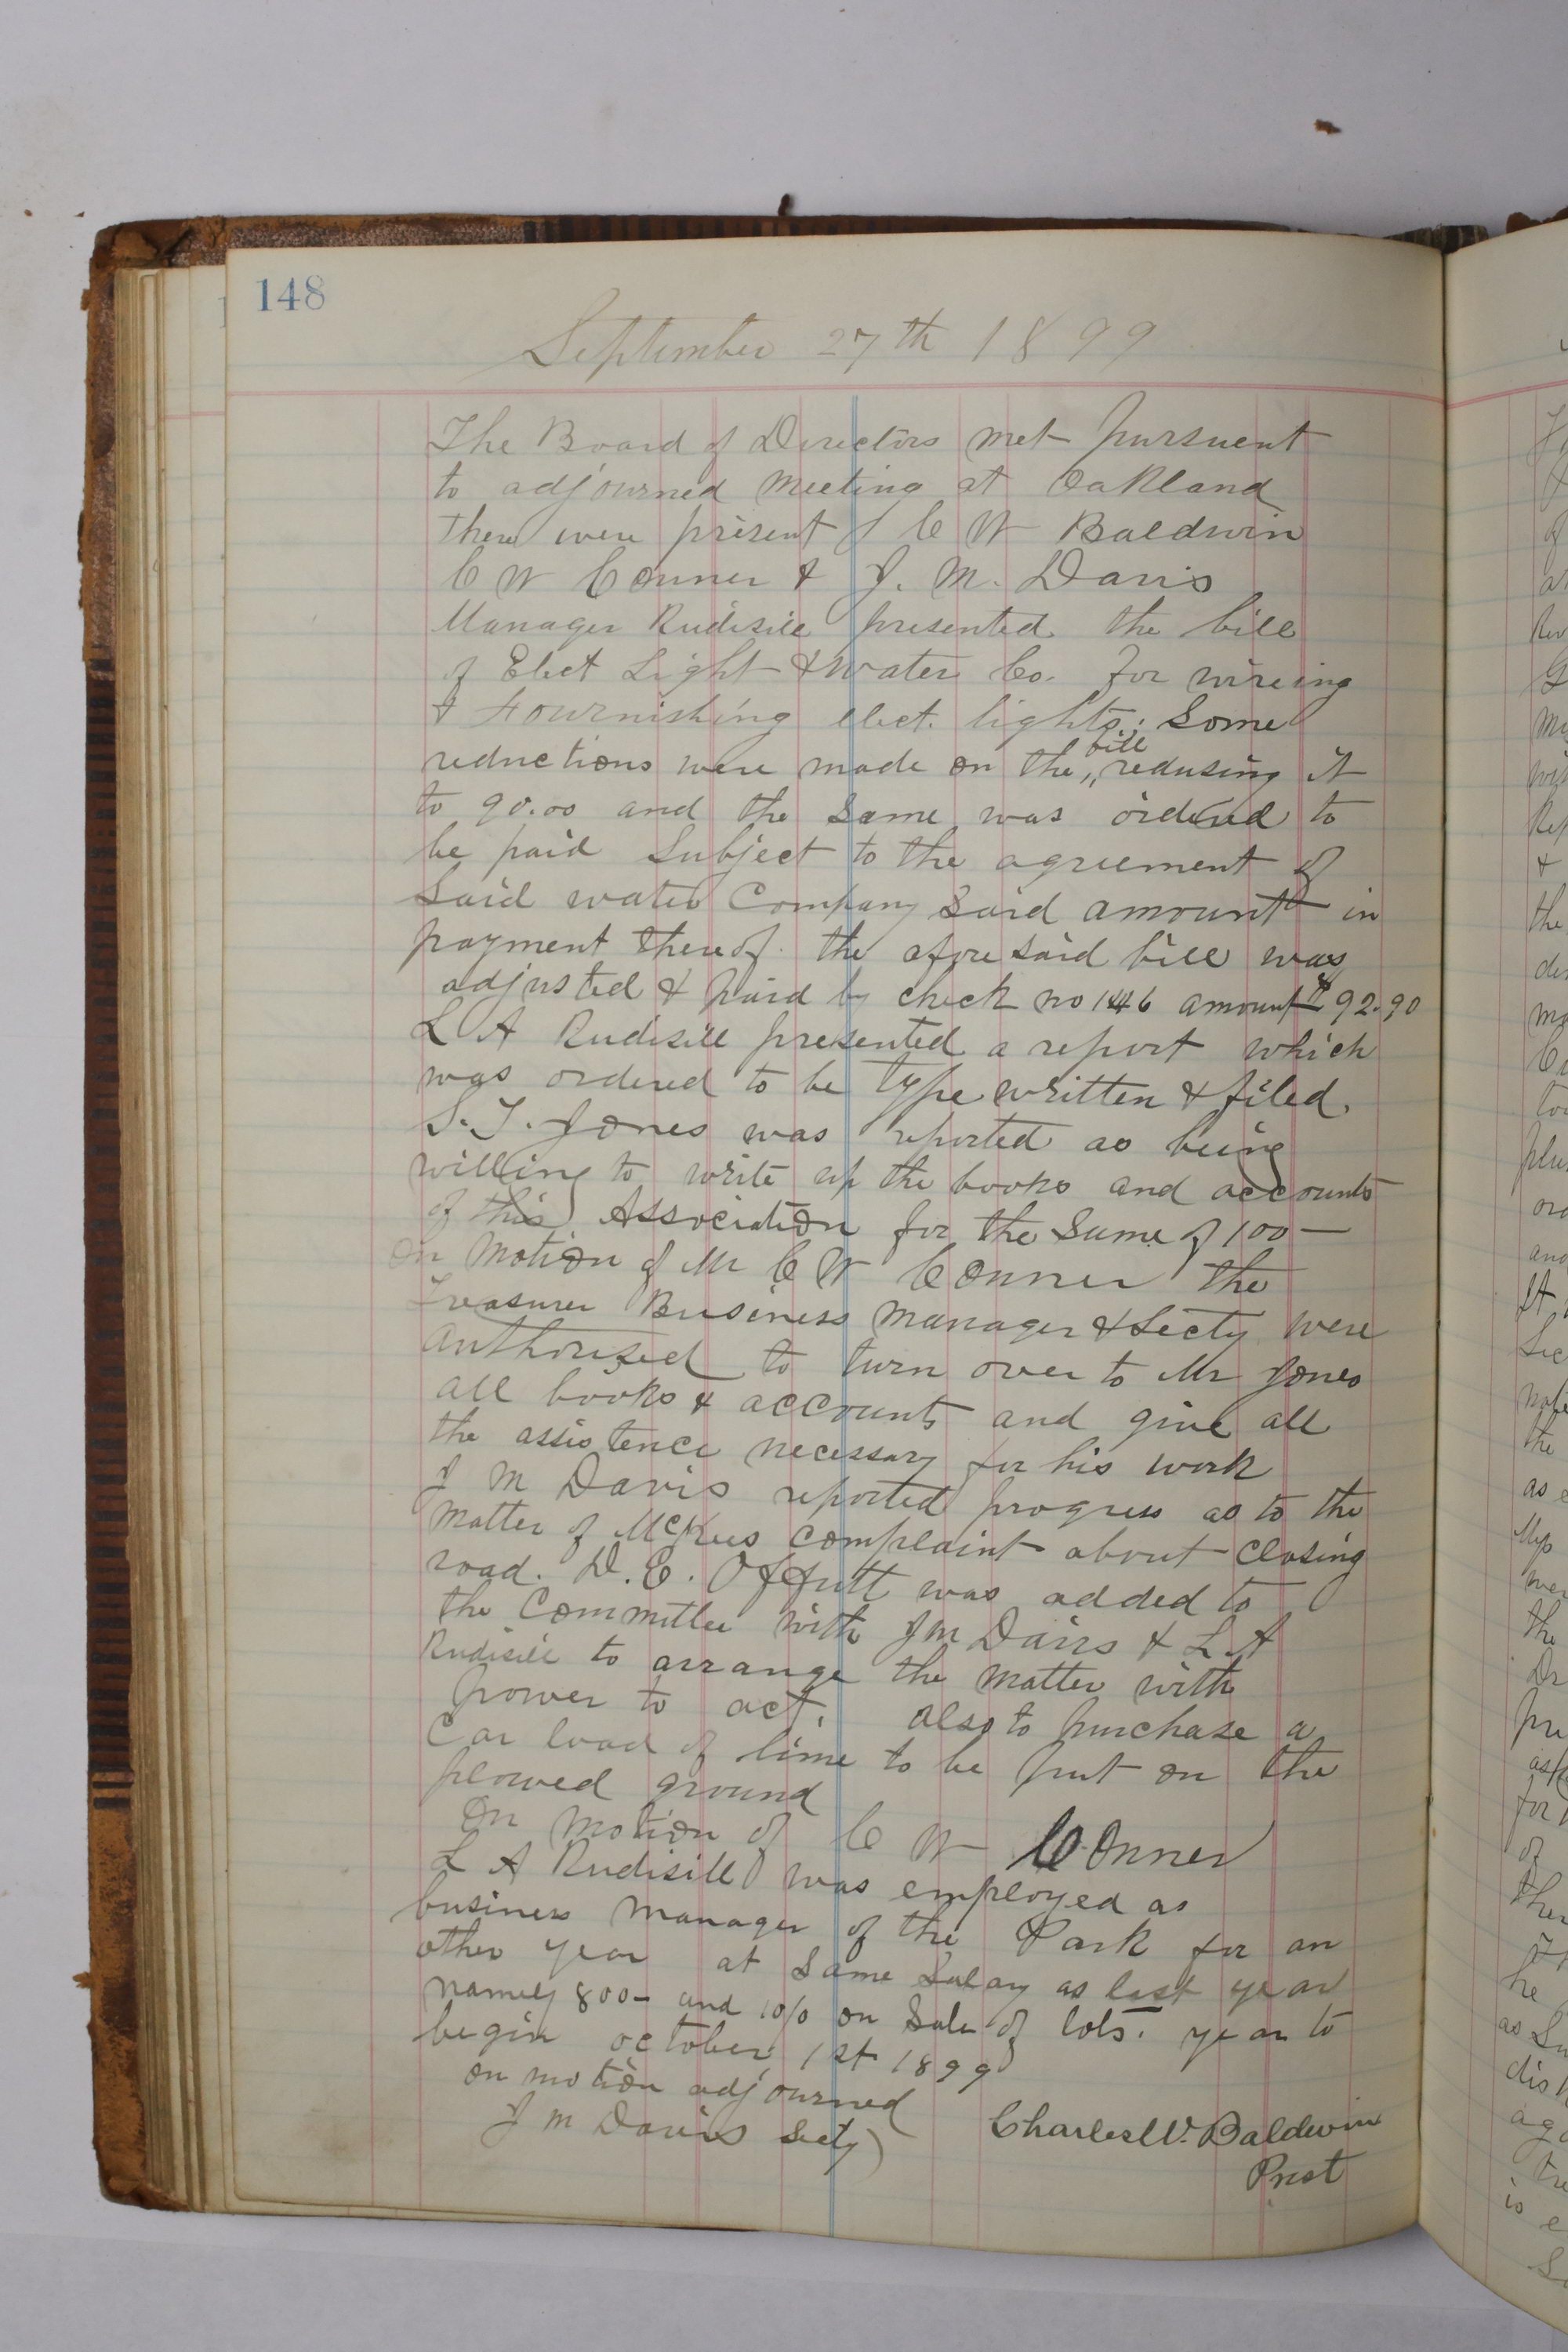 148
September 27th 1899
The Board of Directors met pursuent
to adjourned meeting at Oakland
there were present C W Baldwin
C W Conner & J. M. Davis
Manager Rudisill presented the bill
of Elect Light & Water Co. for wireing
& fournishing elect. lights; Some
reductions were made on the bill redusing it
to 90.00 and the same was ordered to
be paid Subject to the agreement of
Said water Company Said amount in
payment thereof. the afore said bill was
adjusted & paid by check no 1446 amount $92.90
L A Rudisill presented a report which
was ordered to be type written & filed.
S. T. Jones was reported as being
willing to write up the books and accounts
of this Association for the Sume of 100—
on Motion of Mr C W Conner the
Treasurer Business Manager & Secty were
authorized to turn over to Mr Jones
all books & accounts and give all
the assistence necessary for his work
J M Davis reported progress as to the
matter of McKees complaint about closing
road. D. E. Offutt was added to
the Committee with J M Davis & L. A
Rudisill to arrange the matter with
power to act. also to purchase a
Car load of lime to be put on the
plowed ground
On Motion of C W Conner
L A Rudisill was employed as
business manager of the Park for an
other year at Same Salary as last year
namely 800- and 10% on Sale of lots. year to
begin october 1st 1899
on motion adjourned
J M Davis Secty
Charles W. Baldwin
Prest